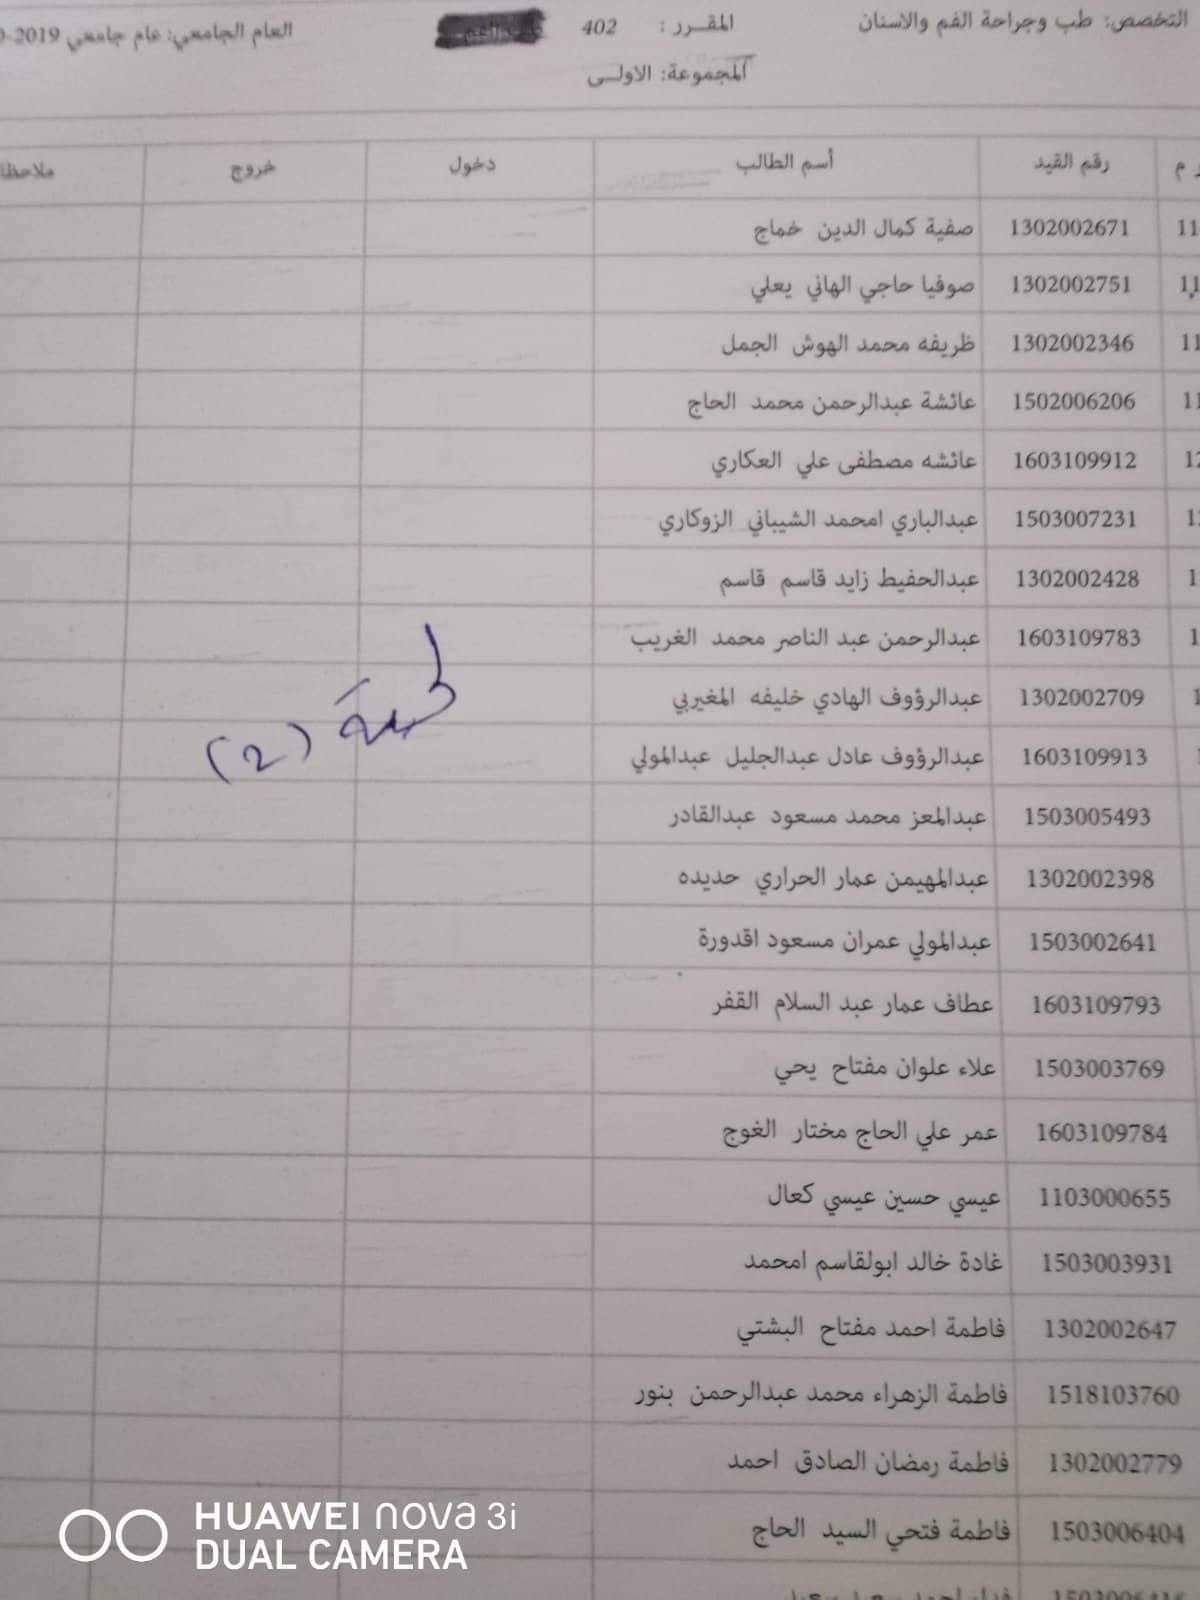 التخصص: طب وجراحة الفم والاسنان المقرر : 402 العام الجامعي: عام جامعي 2019-
المجموعة: الاولى
م رقم القيد أسم الطالب دخول خروج
1302002671 صفية كمال الدين خماج
1302002751 صوفيا حاجي الهاني يعلي
1302002346 ظريفه محمد الهوش الجمل
1502006206 عائشة عبدالرحمن محمد الحاج
1603109912 عائشه مصطفى علي العكاري
1503007231 عبدالباري امحمد الشيباني الزوكاري
1302002428 عبدالحفيظ زايد قاسم قاسم
1603109783 عبدالرحمن عبد الناصر محمد الغريب
1302002709 عبدالرؤوف الهادي خليفه المغيربي
1603109913 عبدالرؤوف عادل عبدالجليل عبدالمولي
(2)
1503005493 عبدالمعز محمد مسعود عبدالقادر
1302002398 عبدالمهيمن عمار الحراري حديده
1503002641 عبدالمولي عمران مسعود اقدورة
1603109793 عطاف عمار عبد السلام القفر
1503003769 علاء علوان مفتاح يحي
1603109784 عمر علي الحاج مختار الغوج
1103000655 عيسي حسين عيسي كعال
1503003931 غادة خالد ابولقاسم امحمد
1302002647 فاطمة احمد مفتاح البشتي
1518103760 فاطمة الزهراء محمد عبدالرحمن بنور
1302002779 فاطمة رمضان الصادق احمد
1503006404 فاطمة فتحي السيد الحاج
HUAWEI nova 3i
DUAL CAMERA